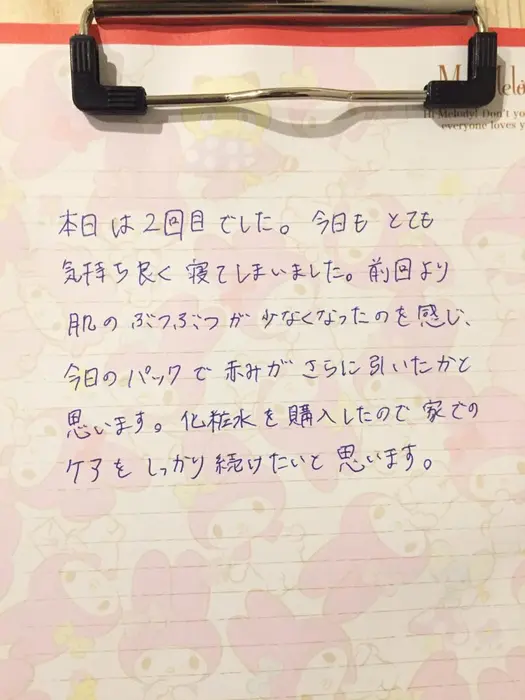 Hi Melody! Don't yo
everyone loves y
本日は2回目でした。今日もとても
気持ち良く寝てしまいました。前回より
肌のぶつぶつが少なくなったのを感じ、
今日のパックで赤みがさらに引いたかと
思います。化粧水を購入したので家での
ケアをしっかり続けたいと思います。